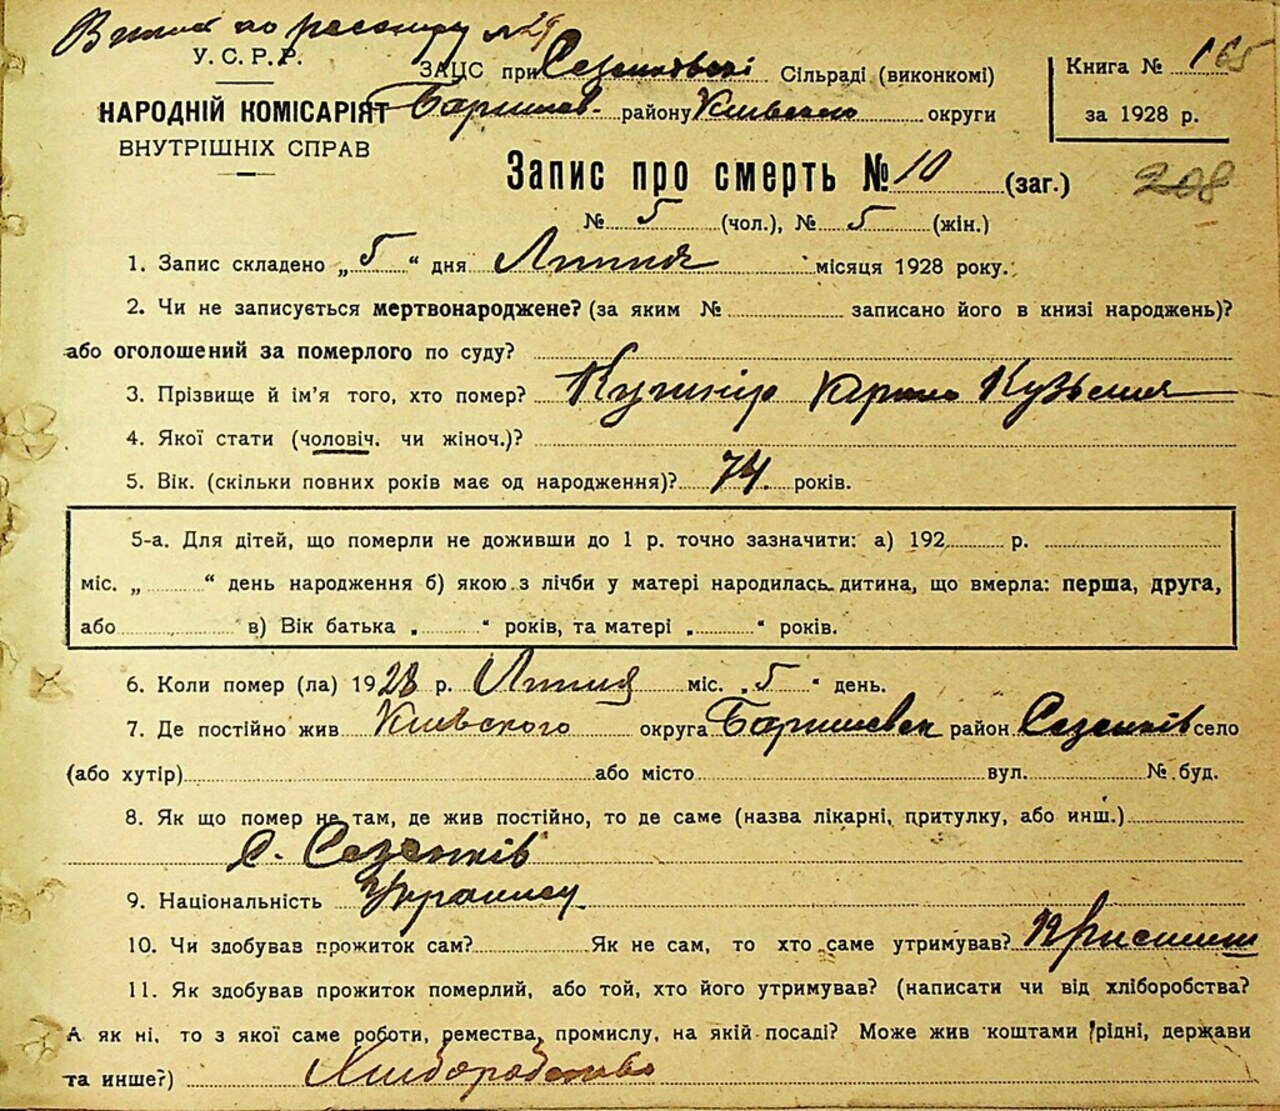 У.С.Р.Р.
НАРОДНІЙ КОМІСАРІЯТ
ВНУТРІШНІХ СПРАВ
ЗАЦС при Сезенковскі Сільраді (виконкомі)
Баришев- району Київського округи
Книга № 165
за 1928 р.
Запис про смерть № 10 (заг.)
208
№ 5 (чол.), № 5 (жін.)
1. Запис складено „ 5 “ дня Липня місяця 1928 року.
2. Чи не записується мертвонароджене? (за яким № записано його в книзі народжень)?
або оголошений за померлого по суду?
3. Прізвище й ім'я того, хто помер? Кушнір Кузьмия
4. Якої стати (чоловіч. чи жіноч.)?
5. Вік. (скільки повних років має од народження)? 74. років.
5-а. Для дітей, що померли не доживши до 1 р. точно зазначити: а) 192 р.
міс. „ “ день народження б) якою з лічби у матері народилась дитина, що вмерла: перша, друга,
або в) Вік батька „ “ років, та матері „ “ років.
6. Коли помер (ла) 1928 р. Липня міс. „ 5 “ день.
7. Де постійно жив Київского округа Баришевск район Сезенків село
(або хутір) або місто вул. № буд.
8. Як що помер не там, де жив постійно, то де саме (назва лікарні, притулку, або инш.)
с. Сезенків
9. Національність Украинец
10. Чи здобував прожиток сам? Як не сам, то хто саме утримував?
11. Як здобував прожиток померлий, або той, хто його утримував? (написати чи від хліборобства?
А як ні, то з якої саме роботи, ремества, промислу, на якій посаді? Може жив коштами рідні, держави
та инше?) Хліборобство